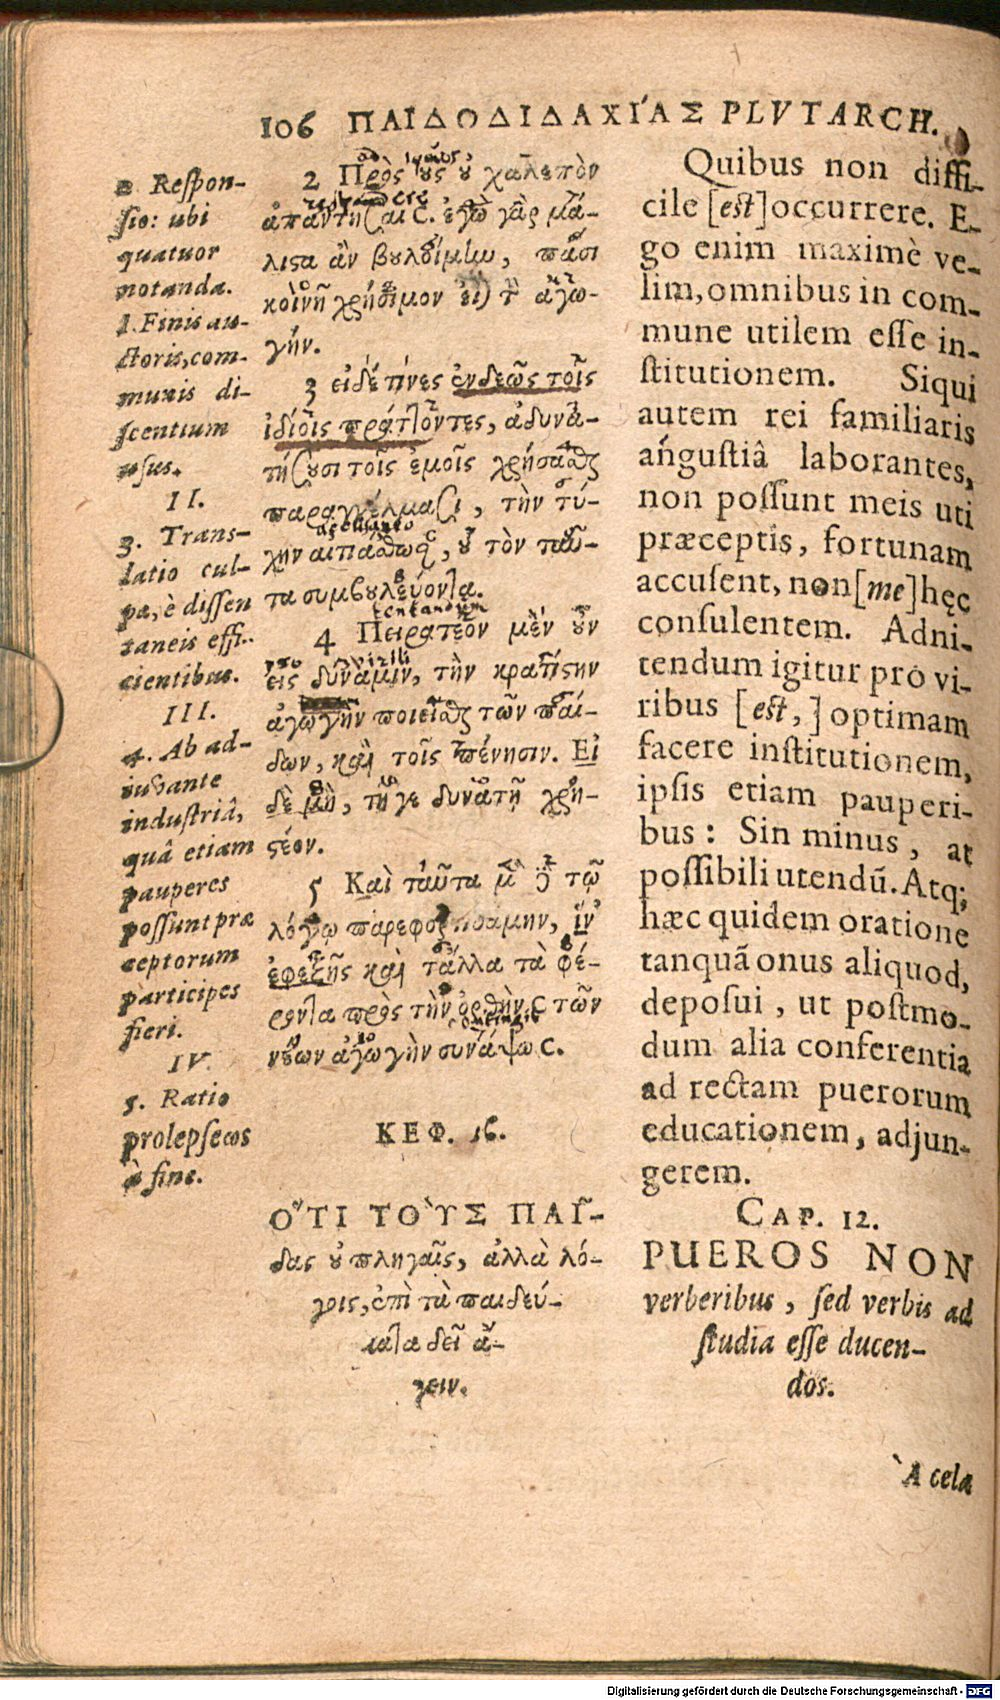 106 ΠΑΙΔΟΔΙΔΑΧΊΑΣ PLVTARCH.
2 Respon-
sio: ubi
quatuor
notanda.
1. Finis au-
ctoris, com-
munis di-
scentium
usus.
II.
3. Trans-
latio cul-
pa, è dissen
taneis effi-
cientibus.
III.
4. Ab ad-
iuvante
industriâ,
quâ etiam
pauperes
possunt præ
ceptorum
participes
fieri.
IV.
5. Ratio
prolepseωs
à fine.
2 Πρὸς οὓς οὐ χαλεπὸν
ἀπαντῆσαί ς. ἐγὼ γὰρ μά-
λιςα ἂν βουλοίμην, πᾶσι
κοινῇ χρήσιμον εἶ) τ̀ ἀγω-
γήν.
3 εἰ δέ τινες ἐνδεῶς τοῖς
ἰδίοις πράττοντες, ἀδυνα-
τήσουσι τοῖς ἐμοῖς χρήσαθζ
παραγγέλμασι, τὴν τύ-
χην αἰτιάθωσ, οὐ τὸν ταῦ-
τα συμβουλεύοντα.
4 Πειρατέον μὲν οὖν
εἰς δύναμιν, τὴν κρατίςην
ἀγωγὴν ποιεῖθζ τῶν παί-
δων, καὶ τοῖς πένησιν. Εἰ
δὲ μὴ, τῇ γε δυνατῇ χρη-
ςέον.
5 Καὶ ταῦτα μ̀ δὴ τῷ
λόγῳ παρεφορτισάμην, ἵν'
ἐφεξῆς καὶ τἆλλα τὰ φέ-
ροντα πρὸς τὴν ὀρθὴν ς τῶν
νέων ἀγωγὴν συνάψω ς.
ΚΕΦ. ις.
ὍΤΙ ΤΟῪΣ ΠΑΙ͂-
δας οὐ πληγαῖς, ἀλλὰ λό-
γοις, ἐπὶ τὰ παιδεύ-
ματα δεῖ ἄ-
γειν.
Quibus non diffi-
cile [est] occurrere. E-
go enim maximè ve-
lim, omnibus in com-
mune utilem esse in-
stitutionem. Siqui
autem rei familiaris
angustiâ laborantes,
non possunt meis uti
præceptis, fortunam
accusent, non [me] hęc
consulentem. Adni-
tendum igitur pro vi-
ribus [est,] optimam
facere institutionem,
ipsis etiam pauperi-
bus: Sin minus, at
possibili utendū. Atq;
hæc quidem oratione
tanquā onus aliquod,
deposui, ut postmo-
dum alia conferentia
ad rectam puerorum
educationem, adjun-
gerem.
CAP. 12.
PUEROS NON
verberibus, sed verbis ad
studia esse ducen-
dos.
A cela
Digitalisierung gefördert durch die Deutsche Forschungsgemeinschaft - DFG